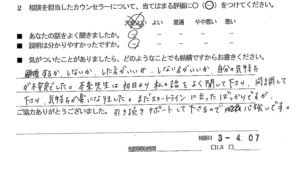 2 相談を担当したカウンセラーについて、当てはまる評価に○(○)をつけてください。
大変よい よい 普通 やや悪い 悪い
■ あなたの話をよく聞きましたか。
■ 説明は分かりやすかったですか。
■ 気がついたことがありましたら、どのようなことでも結構ですからお書きください。
するか、しないか、した方がいいか、しない方がいいか、自分の気持ち
が不安定でした。先生は初日より私の話をよく聞いて下さり、
下さり、気持ちが楽になりました。まだスタートラインに立ったばっかりですが、
ご協力ありがとうございました。 引き続きサポートして下さるので 心強いです。
相談日 3-4.07